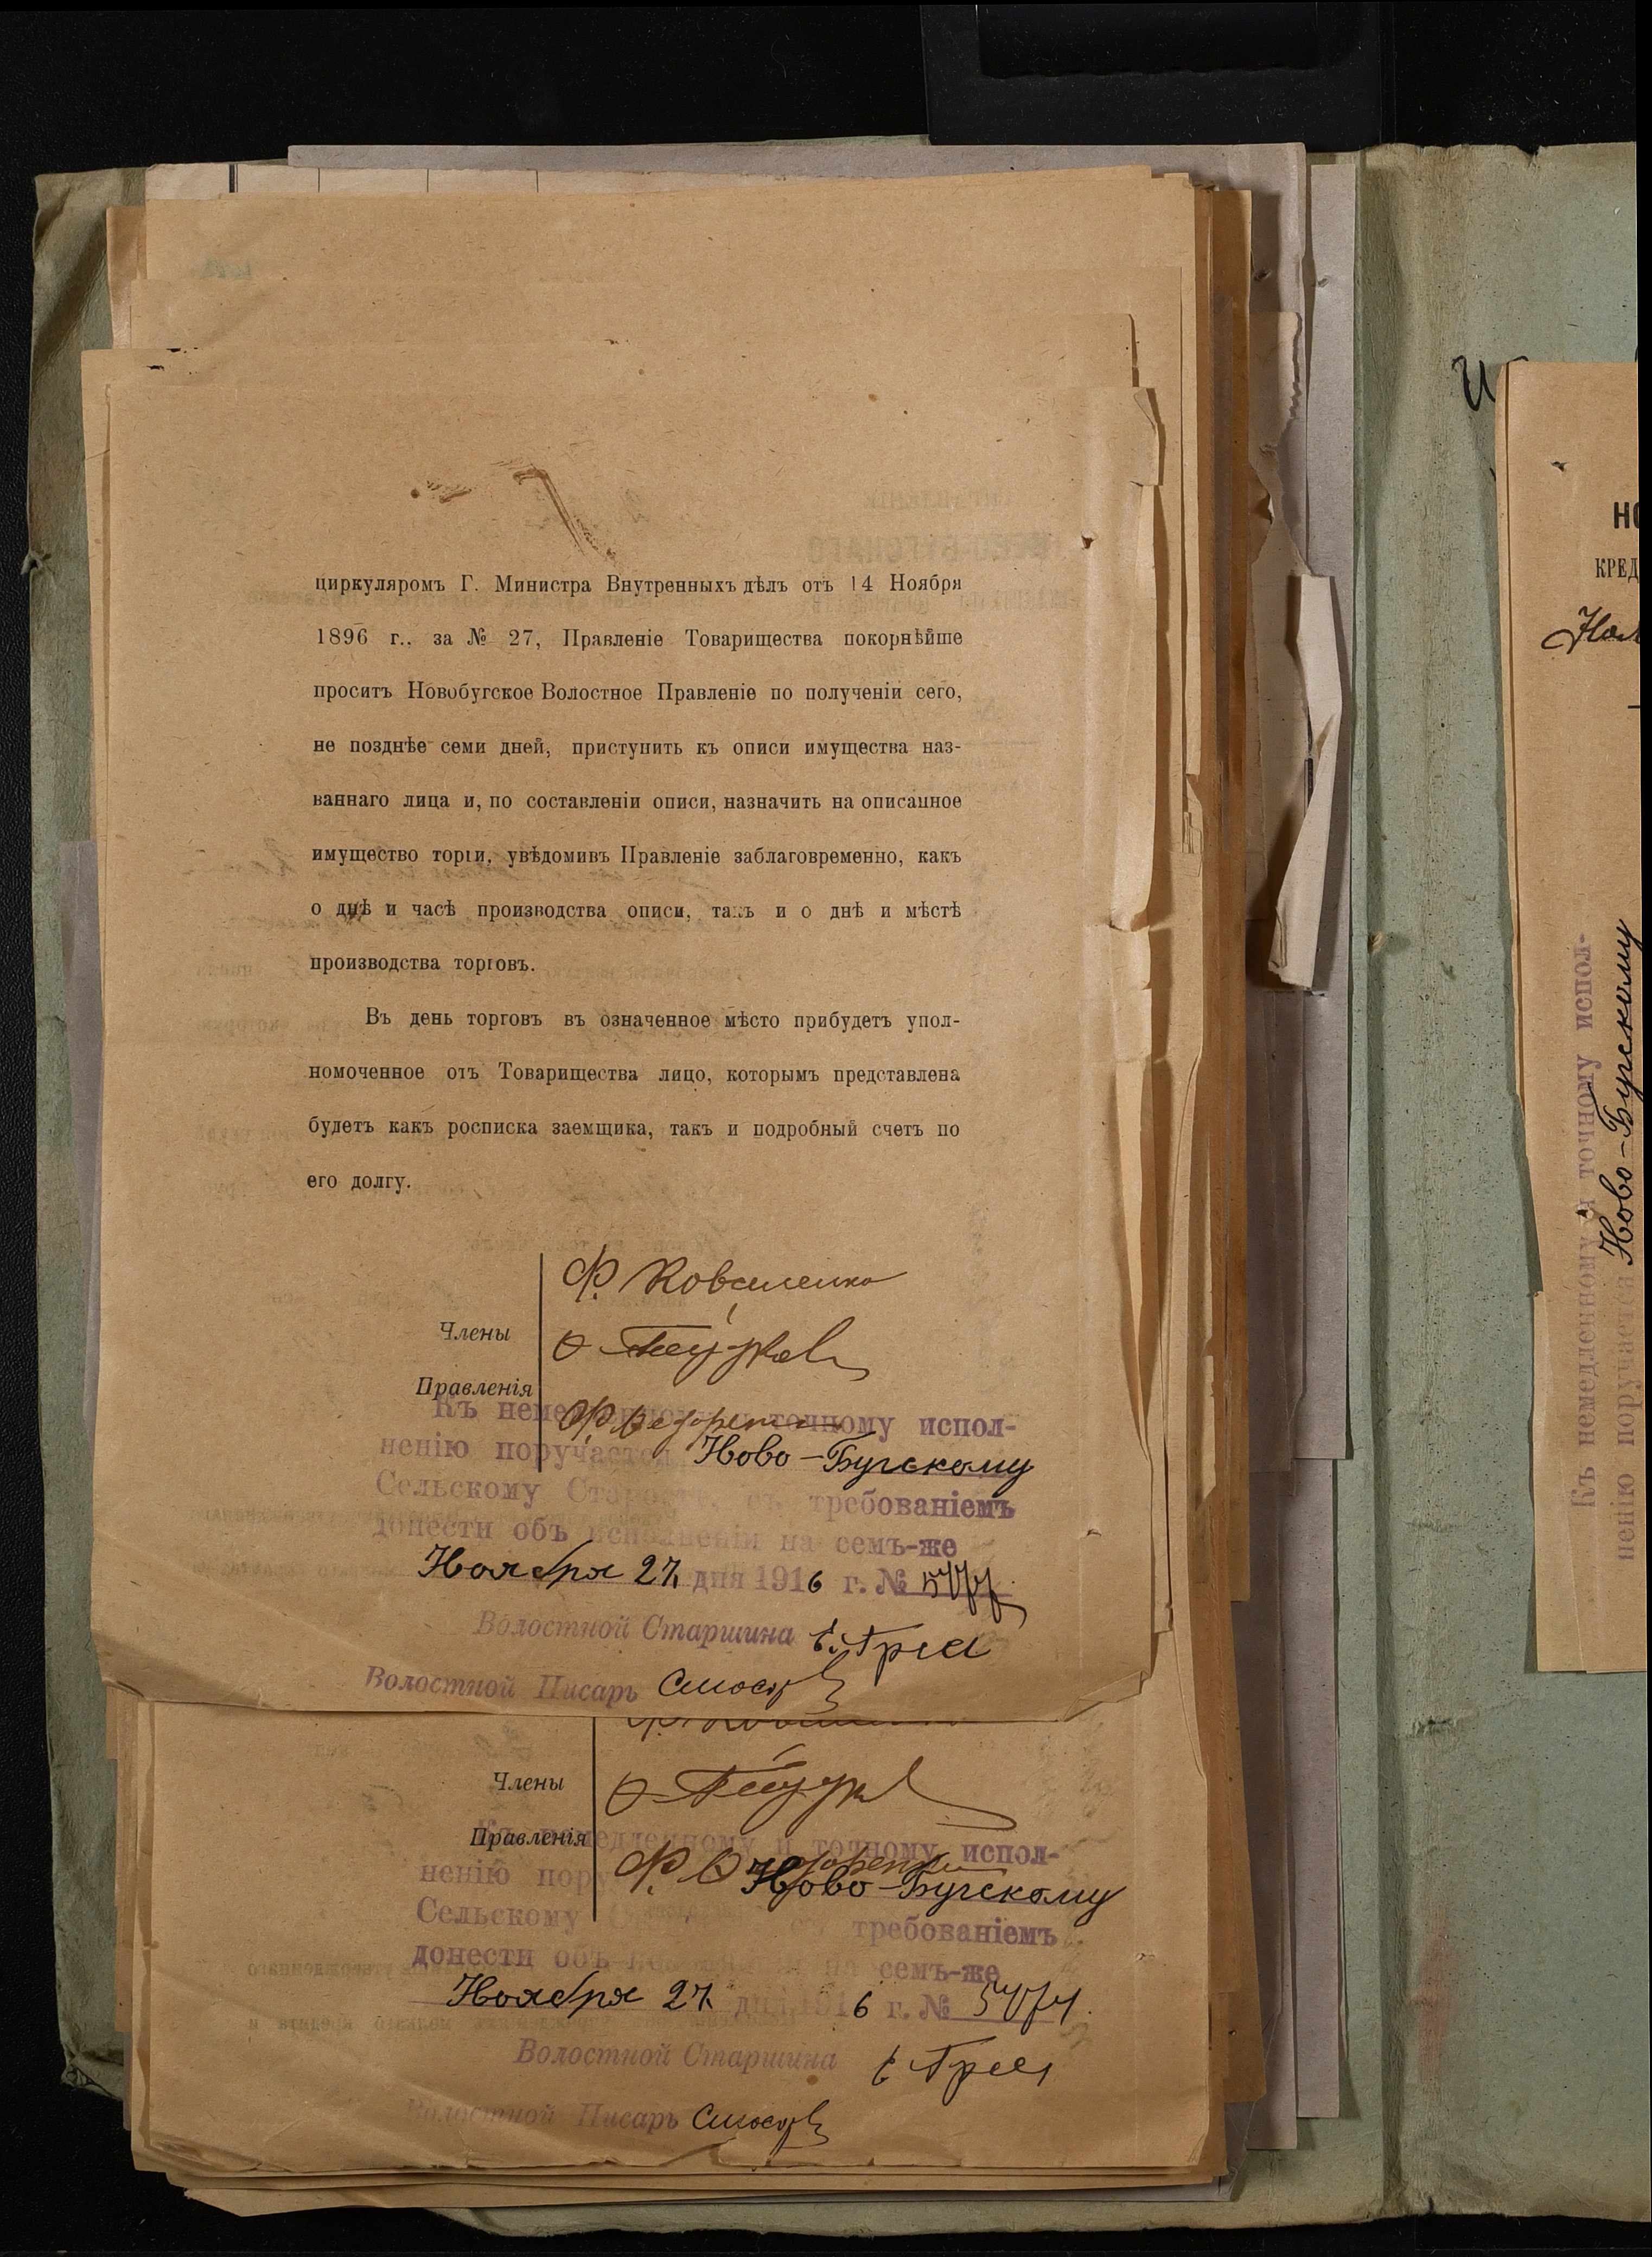 циркуляромъ Г. Министра Внутренныхъ дѣлъ отъ 14 Ноября
1896 г., за № 27, Правленіе Товарищества покорнѣйше
проситъ Новобугское Волостное Правленіе по полученіи сего,
не позднѣе семи дней, приступить къ описи имущества наз-
ваннаго лица и, по составленіи описи, назначить на описанное
имущество торги, увѣдомивъ Правленіе заблаговременно, какъ
о днѣ и часѣ производства описи, такъ и о днѣ и мѣстѣ
производства торговъ.
Въ день торговъ въ означенное мѣсто прибудетъ упол-
номоченное отъ Товарищества лицо, которымъ представлена
будетъ какъ росписка заемщика, такъ и подробный счетъ по
его долгу.
Ф. Коваленко
Члены
Правленія
Къ немедленному и точному испол-
ненію поручается Ново-Бугскому
Сельскому Старостѣ, съ требованіемъ
донести объ исполненіи на семъ-же
Ноября 27 дня 1916 г. №
Волостной Старшина
Волостной Писарь
Члены
Правленія
Къ немедленному и точному испол-
ненію Ново-Бугскому
Сельскому требованіемъ
донести объ на семъ-же
Ноября 27 дня 1916 г. №
Волостной Старшина
Волостной Писарь
НО
КРЕД
Къ немедленному и точному испол-
ненію поручается Ново-Бугскому